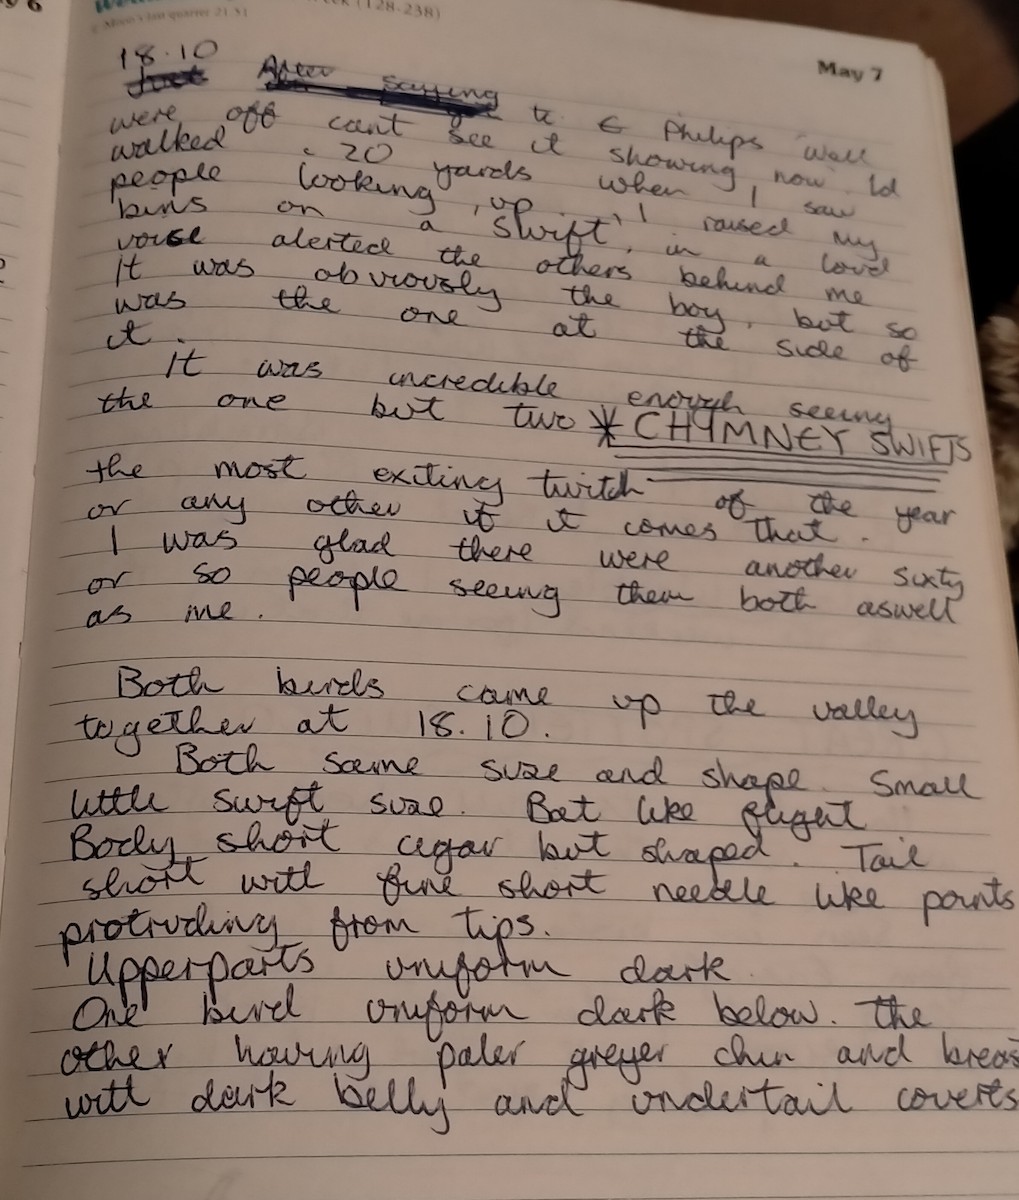 (128-238)
Moon's last quarter 21.51
May 7
18.10
Just After saying to E Philips well
were off cant see it showing now. Id
walked c 20 yards when I saw
people looking up, I raised my
bins on a 'swift', in a loud
voice alerted the others behind me
It was obviously the boy, but so
was the one at the side of
it.
It was incredible enough seeing
the one but two * CHIMNEY SWIFTS
the most exiting twitch of the year
or any other if it comes that.
I was glad there were another sixty
or so people seeing them both aswell
as me.
Both birds came up the valley
together at 18.10.
Both same size and shape. Small
little swift size. Bat like flight
Body short cigar but shaped. Tail
short with fine short needle like points
protruding from tips.
Upperparts uniform dark.
One bird uniform dark below. The
other having paler greyer chin and breas
with dark belly and undertail coverts